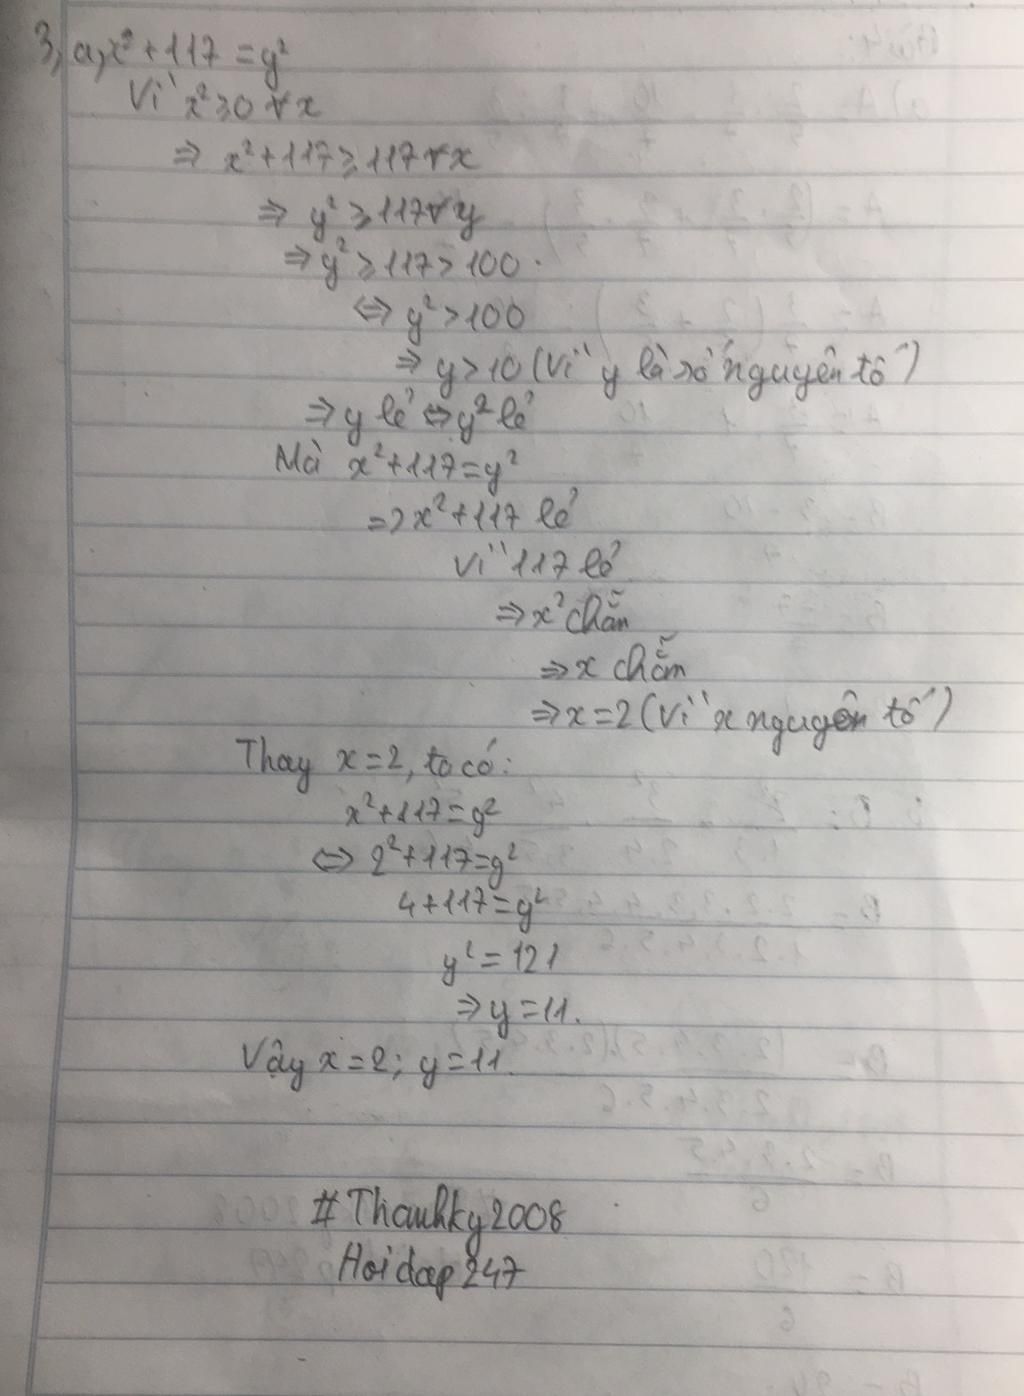 3, a, x² + 117 = y²
Vì x² ⩾ 0 ∀x
⇒ x² + 117 ⩾ 117 ∀x
⇒ y² ⩾ 117 ∀y
⇒ y² ⩾ 117 > 100.
⇔ y² > 100
⇒ y > 10 (Vì y là số nguyên tố)
⇒ y lẻ ⇔ y² lẻ
Mà x² + 117 = y²
=> x² + 117 lẻ
Vì 117 lẻ
⇒ x² chẵn
⇒ x chẵn
⇒ x = 2 (Vì x nguyên tố)
Thay x = 2, ta có:
x² + 117 = y²
⇔ 2² + 117 = y²
4 + 117 = y²
y² = 121
⇒ y = 11.
Vậy x = 2; y = 11.
# Thanhky2008
Hoidap247